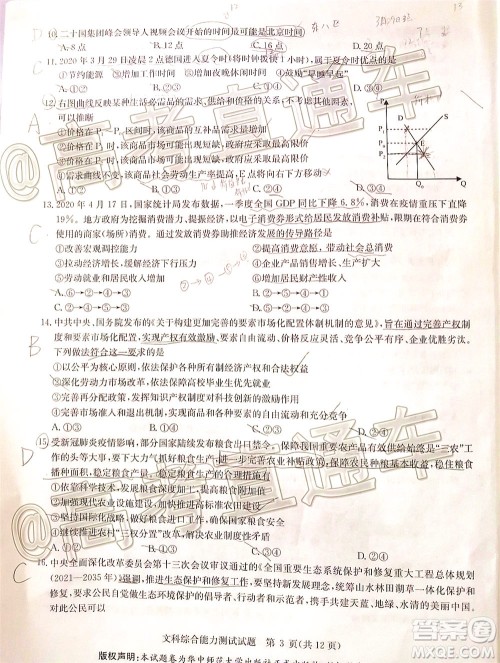 10. 二十国集团峰会领导人视频会议开始的时间最可能是北京时间
A. 8点 B. 12点 C. 16点 D. 20点
11. 2020年3月29日凌晨2点德国进入夏令时(将时钟拨快1小时),属于夏令时优点的是
①节约能源 ②减缓工作节奏 ③增加夜晚休闲时间 ④错开“早晚
A.①② B.①③ C.②④ D.③④
12. 右图曲线反映某种生活必需品的需求、供给和价格的关系。不考虑其他因素,可以推断
①价格在P₁—P₂区间时,该商品的互补品需求量增加
②价格在P₁时,该商品市场供不应求,政府应采取最高限价
③价格在P₂时,该商品市场供过于求,政府应采取最高限价
④生产该商品的社会劳动生产率提高,E点将向右下方移动
A.①④ B.①③ C.②③ D.②④
P
D
S
E
O
Q₀
Q
13. 2020年4月17日,国家统计局发布数据,一季度全国GDP同比下降6.8%,消费在疫情重压下直降19%。地方政府为挖掘消费潜力,提振消费,以电子消费券形式给居民发放消费补贴,规定消费券使用的商家(场所)。通过发放消费券助推经济发展的传导路径是
①改善宏观调控 ②提高消费意愿,带动社会总消费
③拉动经济增长,缓解经济下行压力 ④增加企业营收
⑤劳动就业和居民收入增加 ⑥增加居民财产性收入
A.①→②→④→③ B.②→④→③→⑥
C.②→④→⑤→③ D.①→②→③→⑥
14. 中共中央、国务院发布的《关于构建更加完善的要素市场化配置体制机制的意见》,旨在通过完善产权制度和要素市场化配置,实现产权有效激励、要素自由流动、价格反应灵活、竞争公平有序、企业优胜劣汰。下列做法符合这一要求的是
①以公平为核心原则,依法保护各种所有制经济产权和合法权益
②深化劳动力市场改革,依法保障高校毕业生优先就业
③支持科技体制改革,发挥知识产权制度对科技创新的激励作用
④支持民营企业发展,保障资本和生产要素自由流动和优先消费
A.①② B.①③ C.②④ D.③④
15. 受新冠肺炎疫情影响,部分国家陆续发布粮食出口禁令。保障国家粮食和重要农产品有效供给始终是“三农”工作的头等大事,要下大力气抓好粮食生产,进一步完善农业补贴政策,保障农民种粮基本收益,稳住粮食播种面积,稳定粮食产量
①依靠科学技术,发展绿色农业,完善农业生产布局
②始终把粮食安全作为治国理政的头等大事
③坚持国际战略,做好粮食进口工作,确保粮食安全
④加大支农惠农力度,健全农民种粮激励机制
A.①② B.①③ C.②③ D.②④
16. 中央全面深化改革委员会第十三次会议审议通过的《全国重要生态系统保护和修复重大工程总体规划(2021—2035年)》强调,推进生态保护和修复工作,要坚持新发展理念,统筹山水林田湖草一体化保护和修复,科学布局全国重要生态系统保护和修复重大工程
文科综合能力测试试题 第3页(共12页)
版权声明:本试题卷为华中师范大学出版社正式出版物
@高考直通车
@高考直通车
A
C
B
D
C